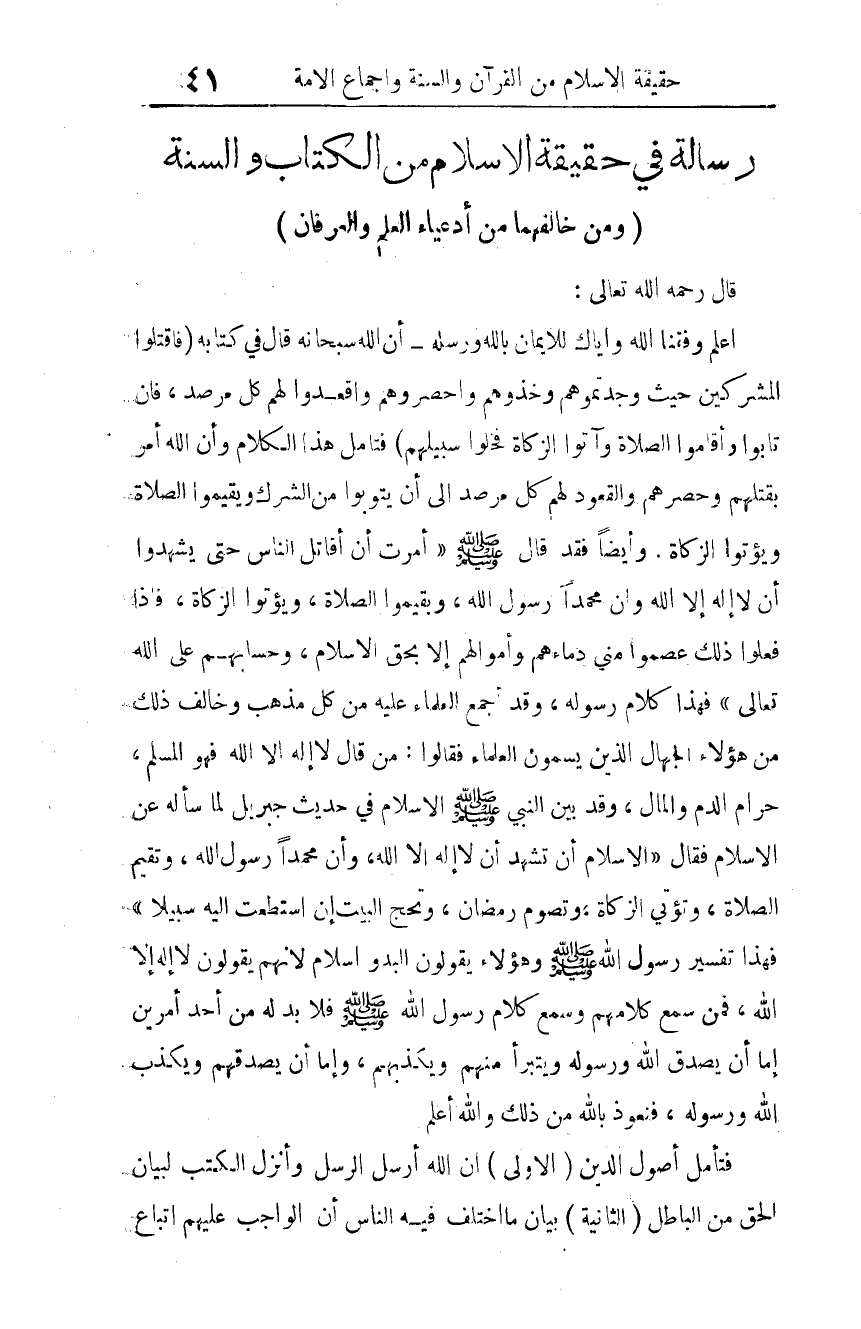 حقيقة الاسلام من القرآن والسنة واجماع الامة ٤١
رسالة في حقيقة الاسلام من الكتاب والسنة
( ومن خالفهما من أدعياء العلم والعرفان )
قال رحمه الله تعالى :
اعلم وفقنا الله واياك للايمان بالله ورسله ــ أن الله سبحانه قال في كتابه (فاقتلوا
المشركين حيث وجدتموهم وخذوهم واحصروهم واقعدوا لهم كل مرصد ، فان
تابوا وأقاموا الصلاة وآتوا الزكاة فخلوا سبيلهم) فتامل هذا الكلام وأن الله أمر
بقتلهم وحصرهم والقعود لهم كل مرصد الى أن يتوبوا من الشرك ويقيموا الصلاة
ويؤتوا الزكاة . وأيضاً فقد قال ﷺ « أمرت أن أقاتل الناس حتى يشهدوا
أن لاإله إلا الله وان محمداً رسول الله ، ويقيموا الصلاة ، ويؤتوا الزكاة ، فاذا
فعلوا ذلك عصموا مني دماءهم وأموالهم إلا بحق الاسلام ، وحسابهم على الله
تعالى » فهذا كلام رسوله ، وقد أجمع العلماء عليه من كل مذهب وخالف ذلك
من هؤلاء الجهال الذين يسمون العلماء فقالوا : من قال لاإله الا الله فهو المسلم ،
حرام الدم والمال ، وقد بين النبي ﷺ الاسلام في حديث جبريل لما سأله عن
الاسلام فقال «الاسلام أن تشهد أن لاإله الا الله، وأن محمداً رسول الله ، وتقيم
الصلاة ، وتؤتي الزكاة ،وتصوم رمضان ، وتحج البيت إن استطعت اليه سبيلا »
فهذا تفسير رسول الله ﷺ وهؤلاء يقولون البدو اسلام لانهم يقولون لاإله إلا
الله ، فمن سمع كلامهم وسمع كلام رسول الله ﷺ فلا بد له من أحد أمرين
إما أن يصدق الله ورسوله ويتبرأ منهم ويكذبهم ، وإما أن يصدقهم ويكذب
الله ورسوله ، فنعوذ بالله من ذلك والله أعلم
فتأمل أصول الدين ( الاولى ) ان الله أرسل الرسل وأنزل الكتب لبيان
الحق من الباطل ( الثانية ) بيان مااختلف فيه الناس أن الواجب عليهم اتباع